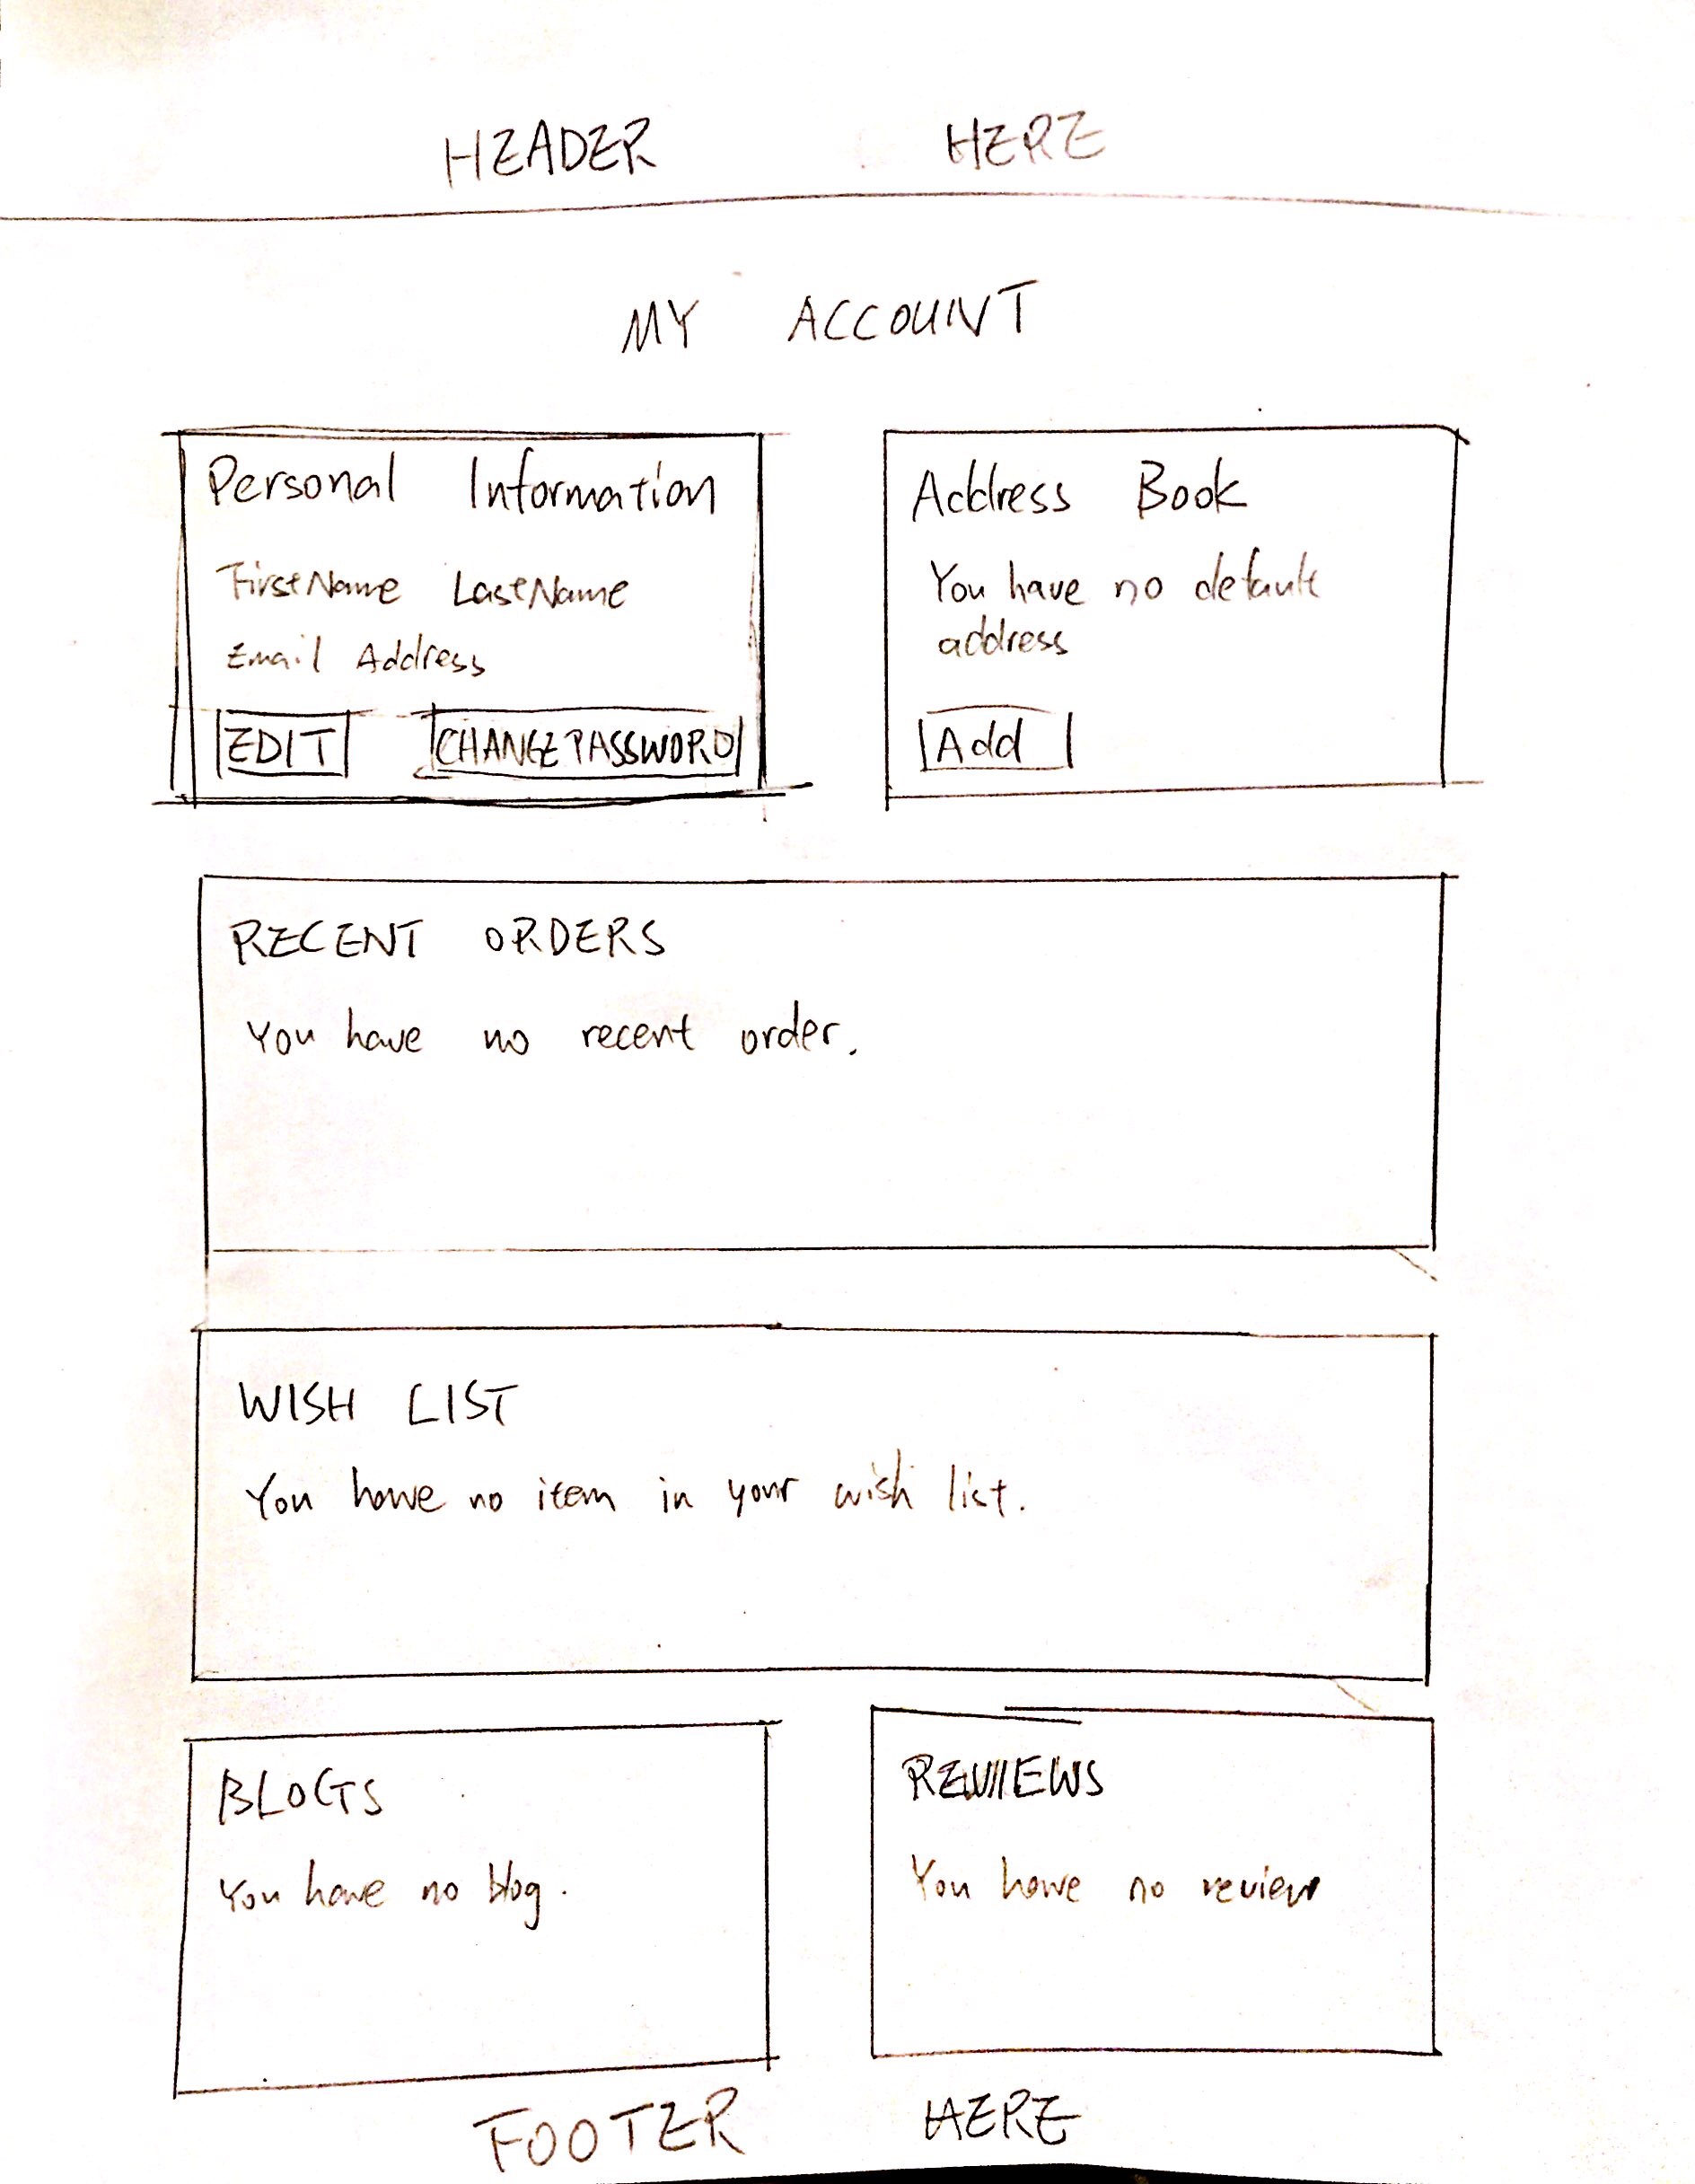 HEADER HERE
MY ACCOUNT
Personal Information
FirstName LastName
Email Address
EDIT CHANGE PASSWORD
Address Book
You have no default
address
Add
RECENT ORDERS
You have no recent order.
WISH LIST
You have no item in your wish list.
BLOGS
You have no blog.
REVIEWS
You have no review
FOOTER HERE